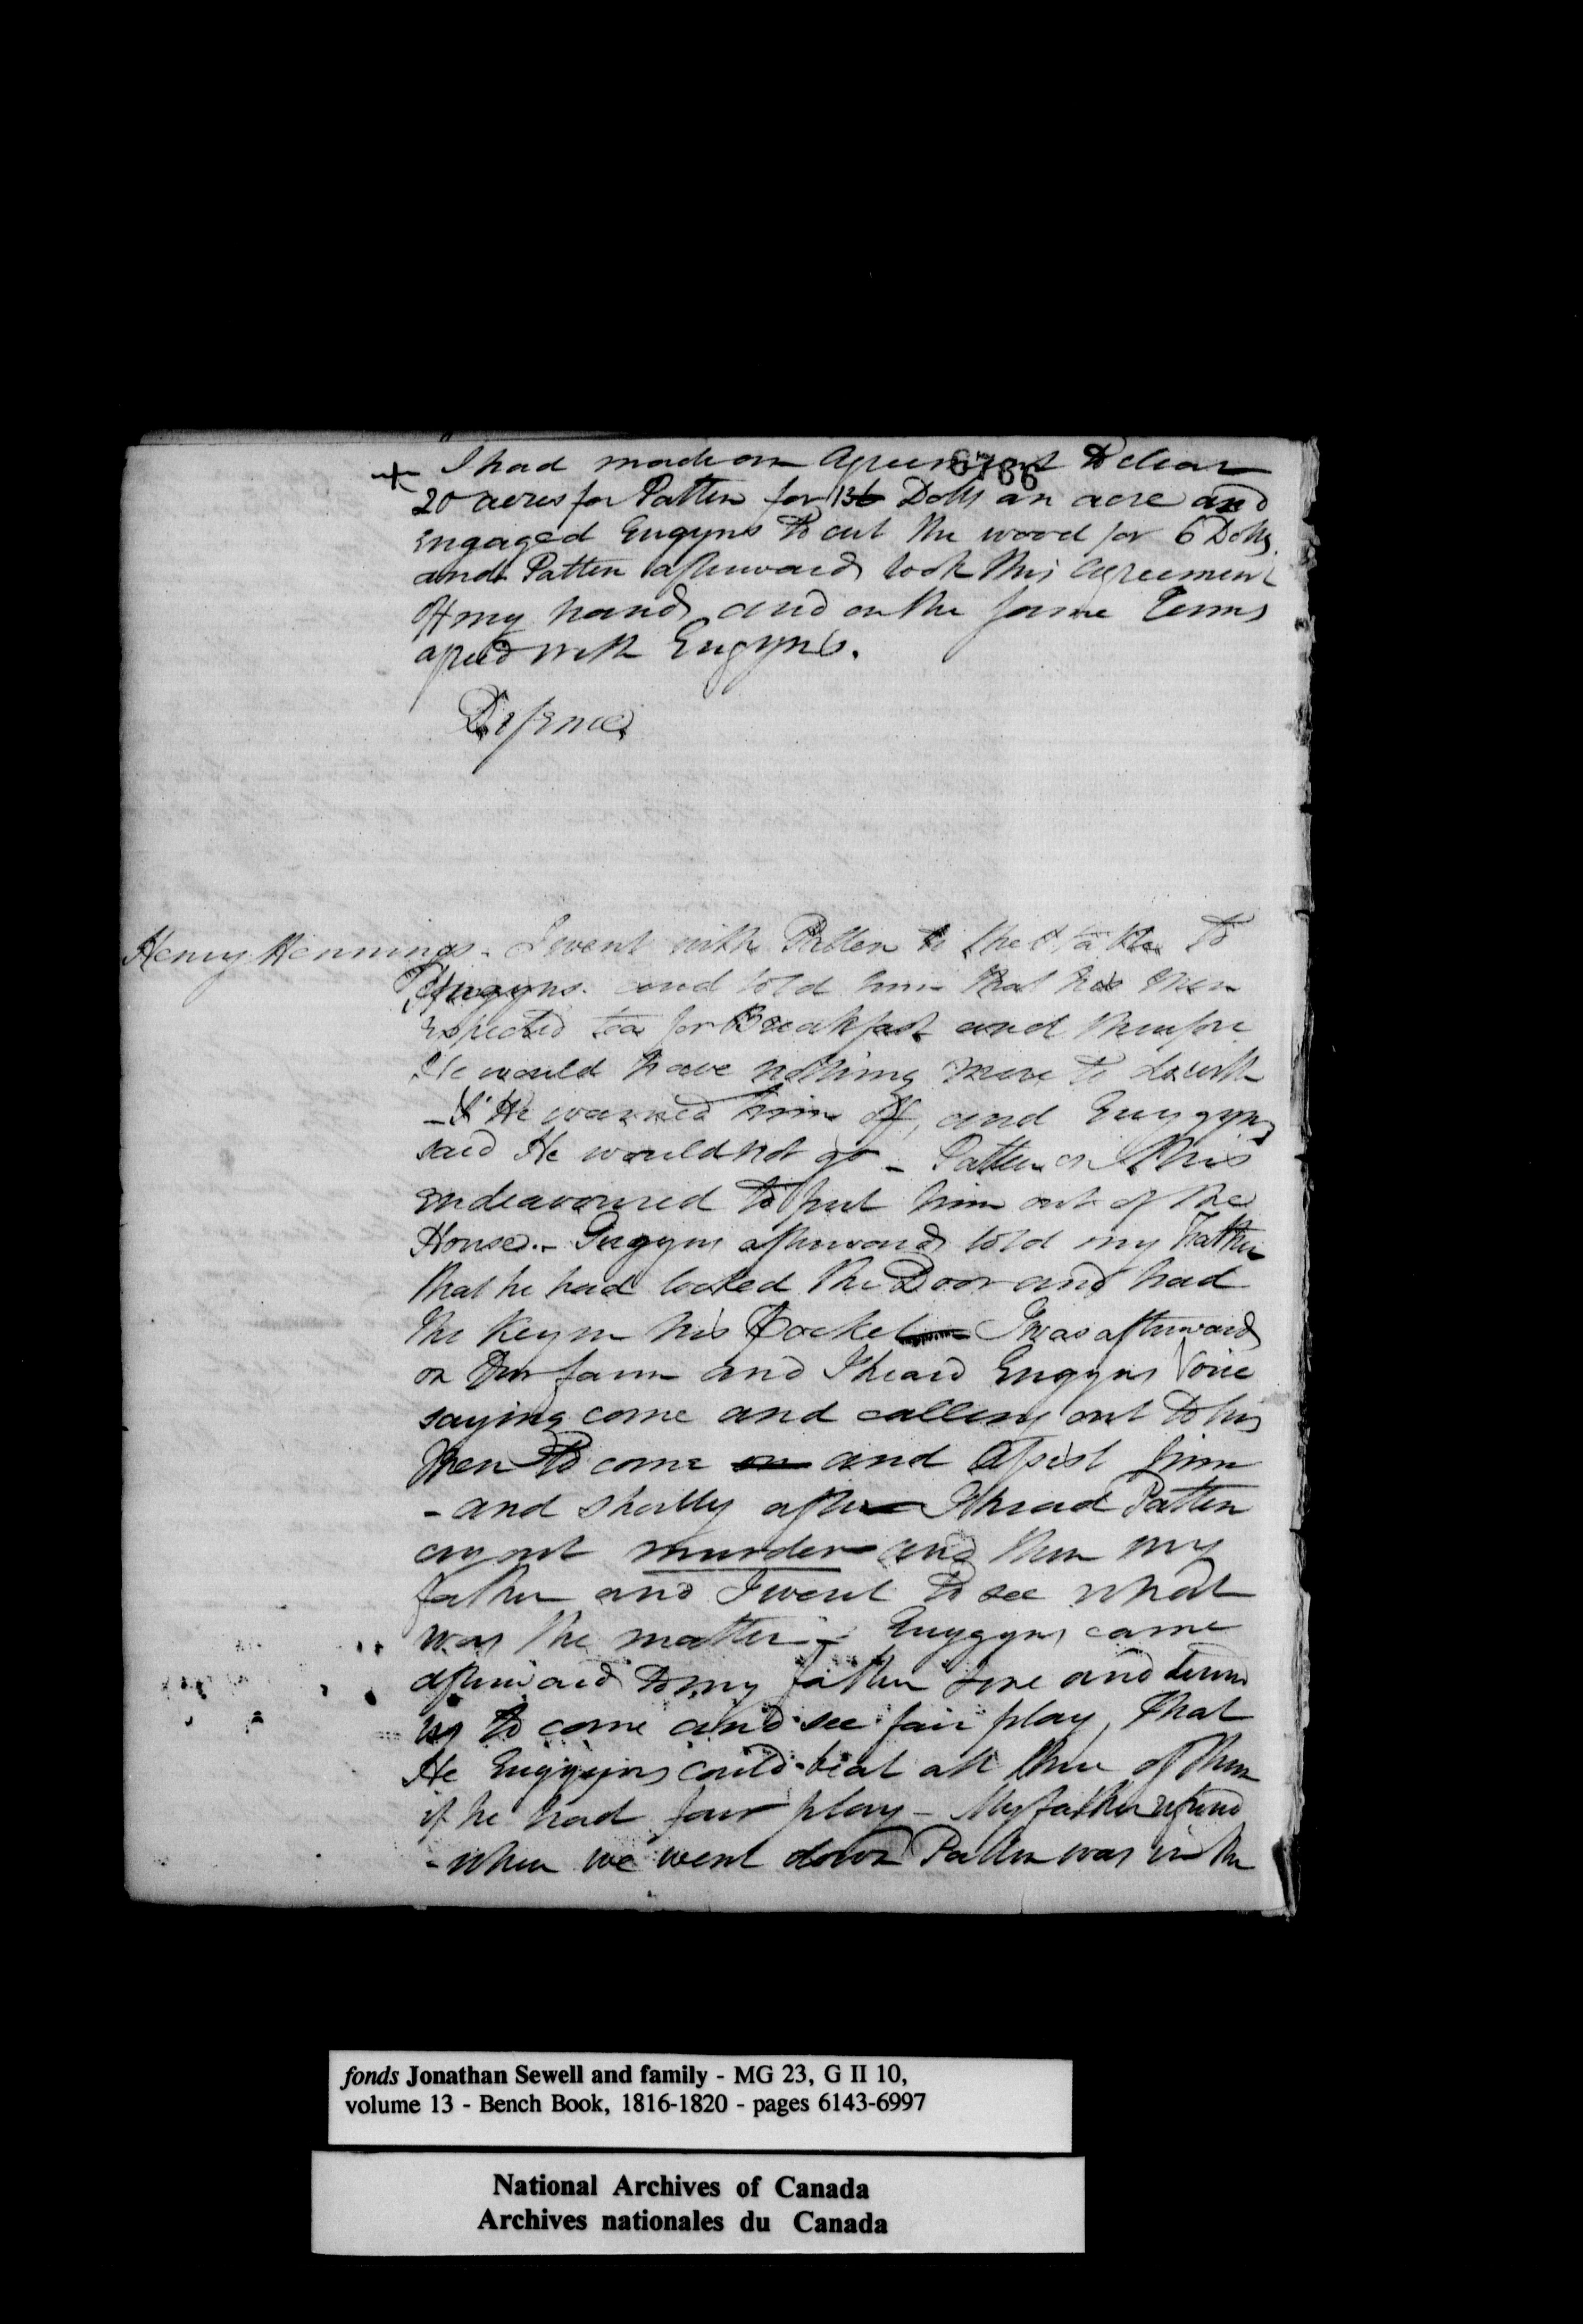 6786
+ I had made an Agreement to clear
20 acres for Patten for 13 Dolls an acre and
engaged Eugyns to cut the wood for 6 Dolls.
and Patten afterwards took this agreement
off my hands and on the same terms
agreed with Eugyns.
Defence
Henry Hennings. I went with Patten to the to
Eugyns. and told him that his men
expected tea for Breakfast and therefore
He would have nothing more to do with
- He warned him off, and Euggyns
said He would not go - Patten on this
endeavoured to put him out of the
House. - Euggyns afterwards told my Father
that he had locked the Door and had
the Key in his Pocket I was afterwards
on Our farm and I heard Euggyns Voice
saying come and calling out to his
Men to come on and Assist him
- and shortly after I heard Patten
cry out murder and then my
father and I went to see what
was the matter - Euggyns came
afterward to my father and
us to come and see fair play, that
He Euggyns could beat all three of them
if he had fair play - My father refused
- when we went down Patten was in the
fonds Jonathan Sewell and family - MG 23, G II 10,
volume 13 - Bench Book, 1816-1820 - pages 6143-6997
National Archives of Canada
Archives nationales du Canada